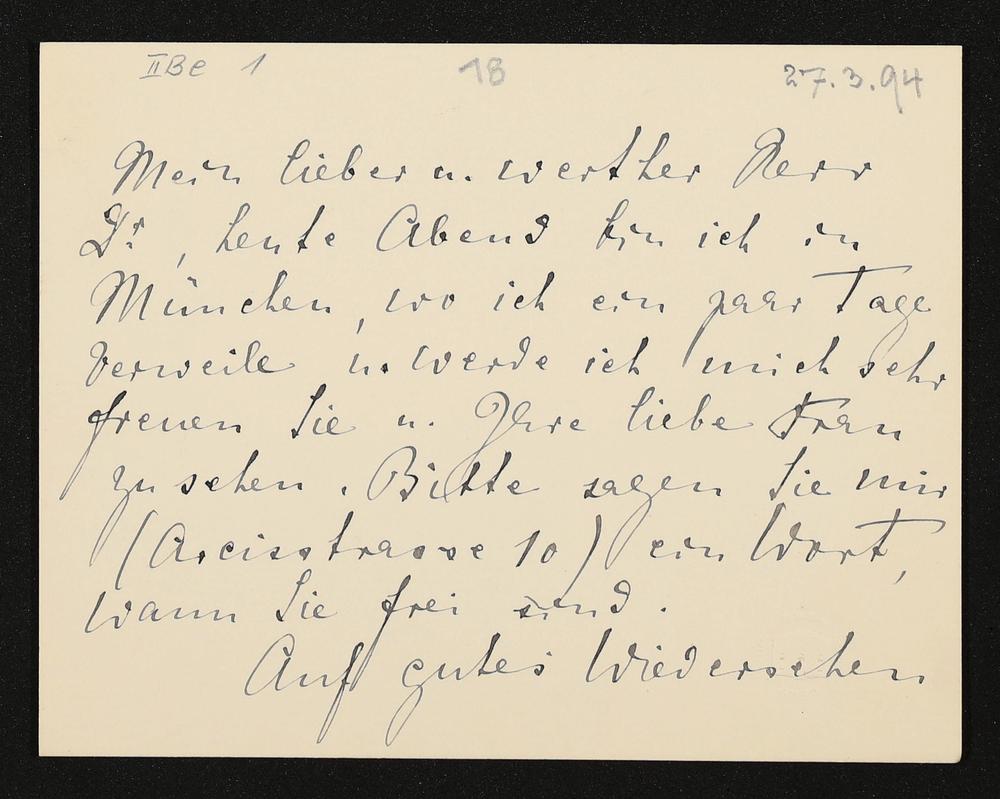 IIBe 1 18 27.3.94
Mein lieber u. werther Herr
Dr, heute Abend bin ich in
München, wo ich ein paar Tage
verweile u. werde ich mich sehr
freuen Sie u. Ihre liebe Frau
zu sehen. Bitte sagen Sie mir
(Arcisstrasse 10) ein Wort,
wann Sie frei sind.
Auf gutes Wiedersehen